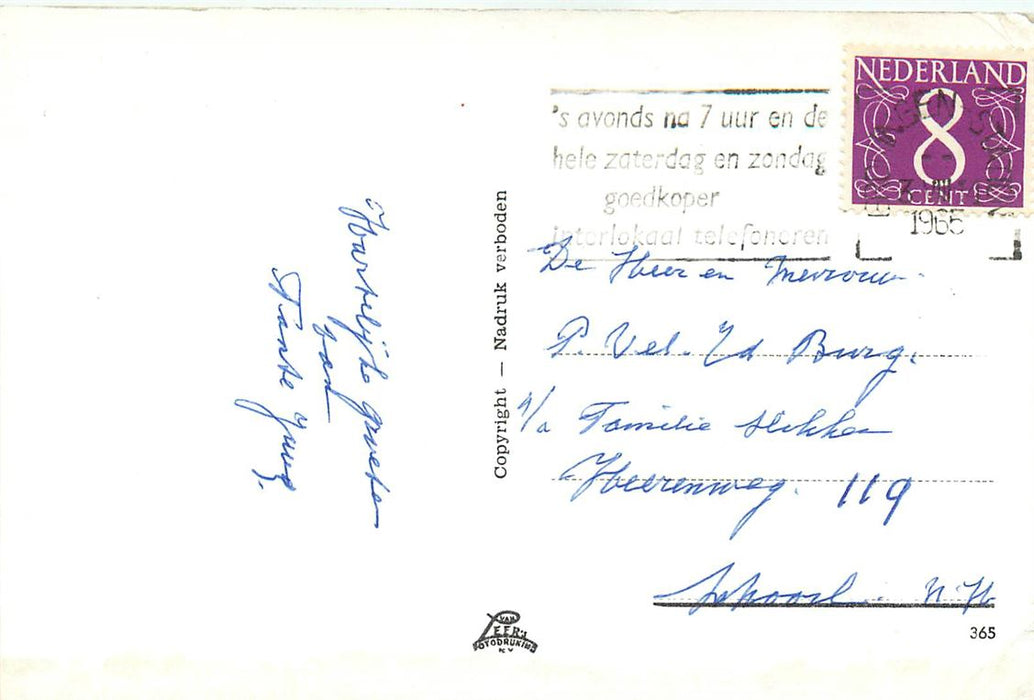 Hartelijke groeten
van
Tante
Copyright — Nadruk verboden
's avonds na 7 uur en de
hele zaterdag en zondag
goedkoper
interlokaal telefoneren
NEDERLAND
8
CENT
1965
De Heer en Mevrouw
P. Vel. Burg.
Familie
Heerenweg. 119
Schoorl. N.H
VAN
LEER'S
FOTODRUKIND
N.V
365